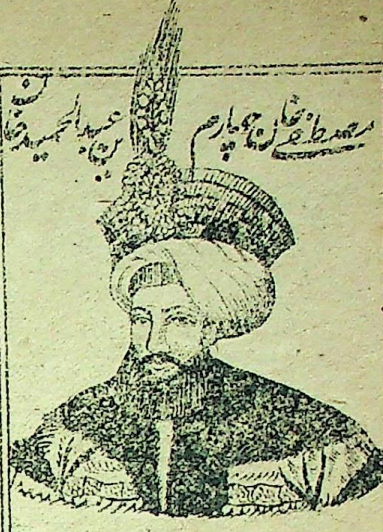 مصطفی خان چهارم بن عبدالحمید خان